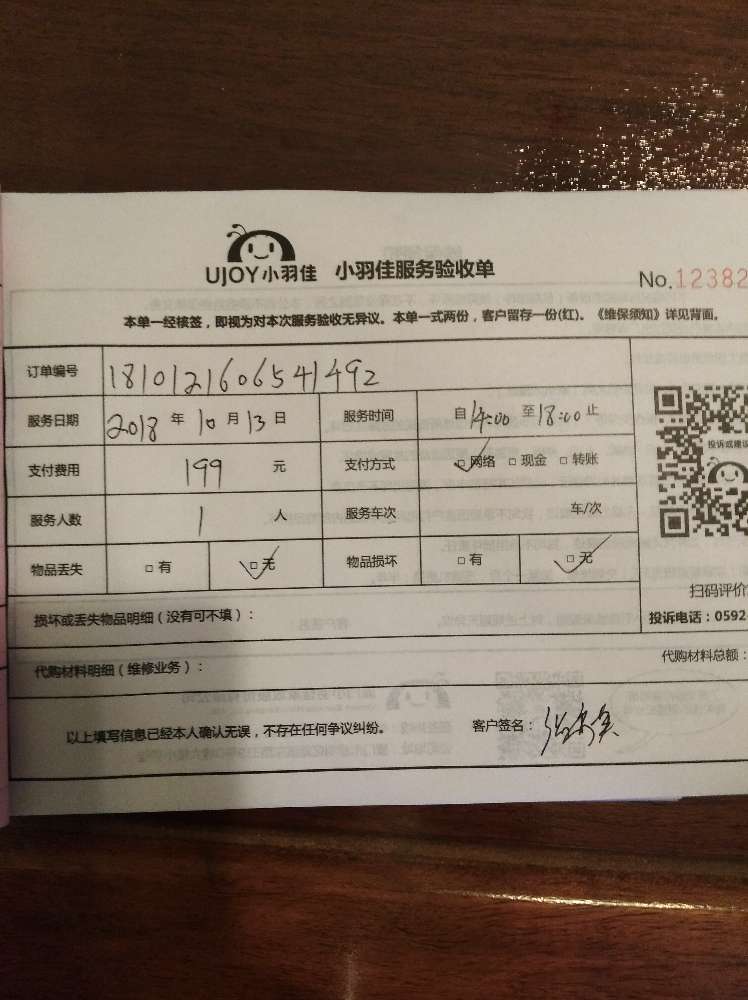 UJOY小羽佳 小羽佳服务验收单
No.12382
本单一经核签，即视为对本次服务验收无异议。本单一式两份，客户留存一份(红)。《维保须知》详见背面。
订单编号 1810121606541492
服务日期 2018 年 10 月 13 日 服务时间 自 14:00 至 18:00 止
投诉或建议
支付费用 199 元 支付方式 □网络 □现金 □转账
服务人数 1 人 服务车次 车/次
物品丢失 □有 □无 物品损坏 □有 □无
扫码评价
损坏或丢失物品明细（没有可不填）：
投诉电话：0592
代购材料明细（维修业务）：
代购材料总额：
以上填写信息已经本人确认无误，不存在任何争议纠纷。 客户签名：